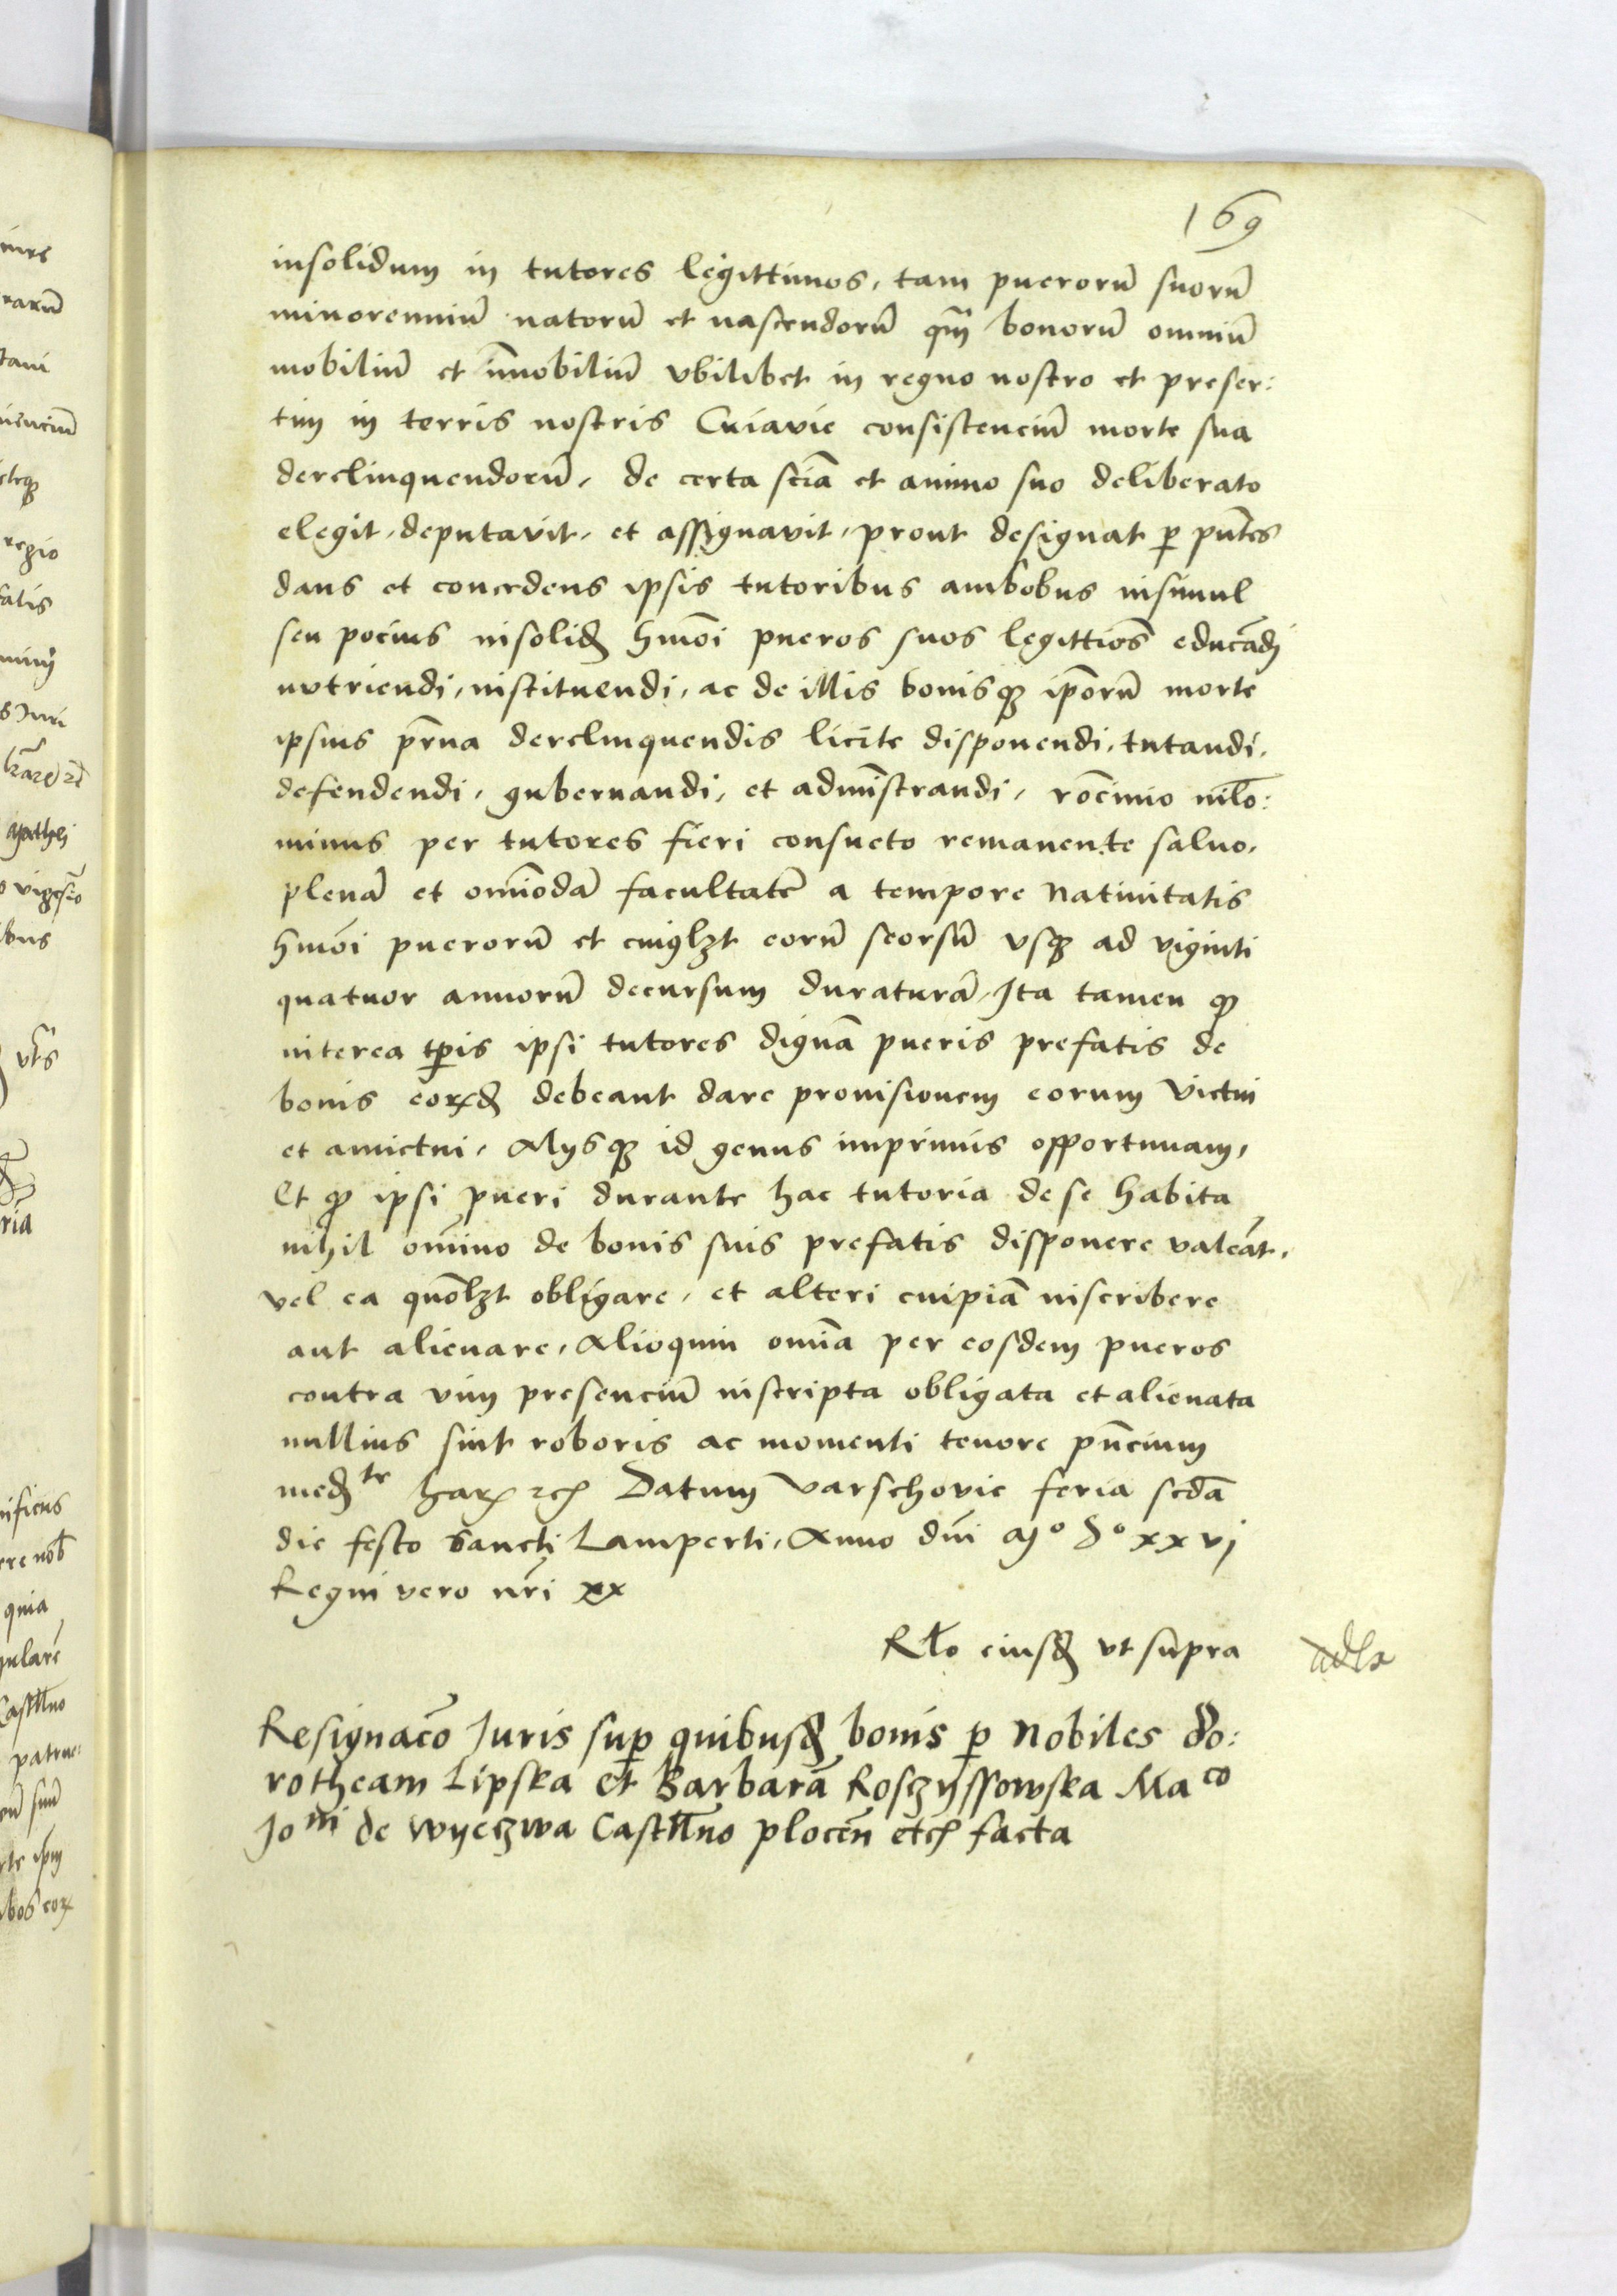 169
insolidum in tutores legittimos, tam puerorū suorū
minorenniū natorū et nascendorū qm̄ bonorū omniū
mobiliū et īmobiliū vbilibet in regno nostro et preser:
tim in terris nostris Cuiavie consistenciū morte sua
derelinquendorū, de certa sciā et animo suo deliberato
elegit, deputavit, et assignavit, prout designat ꝑ pn̄tes
dans et concedens ipsis tutoribus ambobus insimul
seu pocius insolid̄ hmōi pueros suos legittiōs educād̄i
nutriendi, instituendi, ac de illis bonisqꝫ ipōrū morte
ipsius pr̄na derelinquendis licite disponendi, tutandi,
defendendi, gubernandi, et adm̄istrandi, rōcinio nilo:
minus per tutores fieri consueto remanente saluo,
plenā et om̄iodā facultatē a tempore Natiuitatis
hmōi puerorū et cuiuslꝫt eorū seorsū vsqꝫ ad viginti
quatuor annorū decursum duraturā, Ita tamen qꝫ
interea tp̄is ipsi tutores dignā pueris prefatis de
bonis eorꝝd̄ debeant dare prouisionem eorum victui
et amictui, Alysqꝫ id genus imprimis opportunam,
Et qꝫ ipsi pueri durante hac tutoria de se habita
nihil om̄ino de bonis suis prefatis disponere valeāt,
vel ea quōlꝫt obligare, et alteri cuipiā inscribere
aut alienare, Alioquin om̄ia per eosdem pueros
contra vim presenciū inscripta obligata et alienata
nullius sint roboris ac momenti tenore pn̄cium
med̄te harꝝ etc̄ Datum Varschovie feria scdā
die festo Sancti Lamperti, Anno dn̄i Mo do xxvj
Regni vero nr̄i xx
Rlo eiusd̄ vt supra
Resignacō Juris suꝑ quibusd̄ bonis ꝑ Nobiles do:
rotheam Lipska et Barbarā Roszyssowska Maco
Joni de wyeczwa Castllno plocēn etc̄ facta